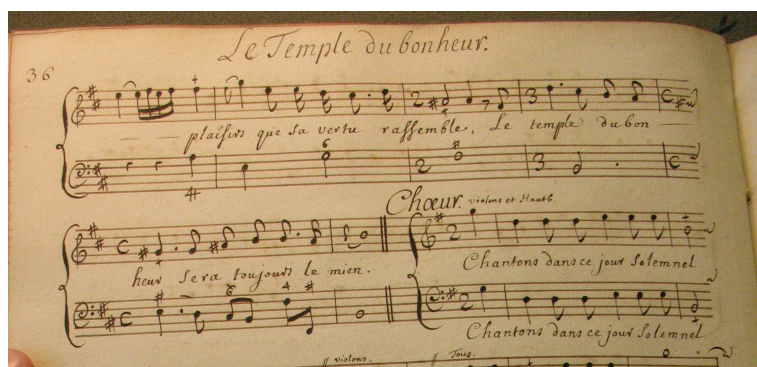 Le Temple du bonheur.
36
plaisirs que sa vertu rassemble, Le temple du bon
Chœur. violons et Hautb.
heur Sera toujours le mien.
Chantons dans ce jour Solemnel
Chantons dans ce jour Solemnel
violons. Tous.